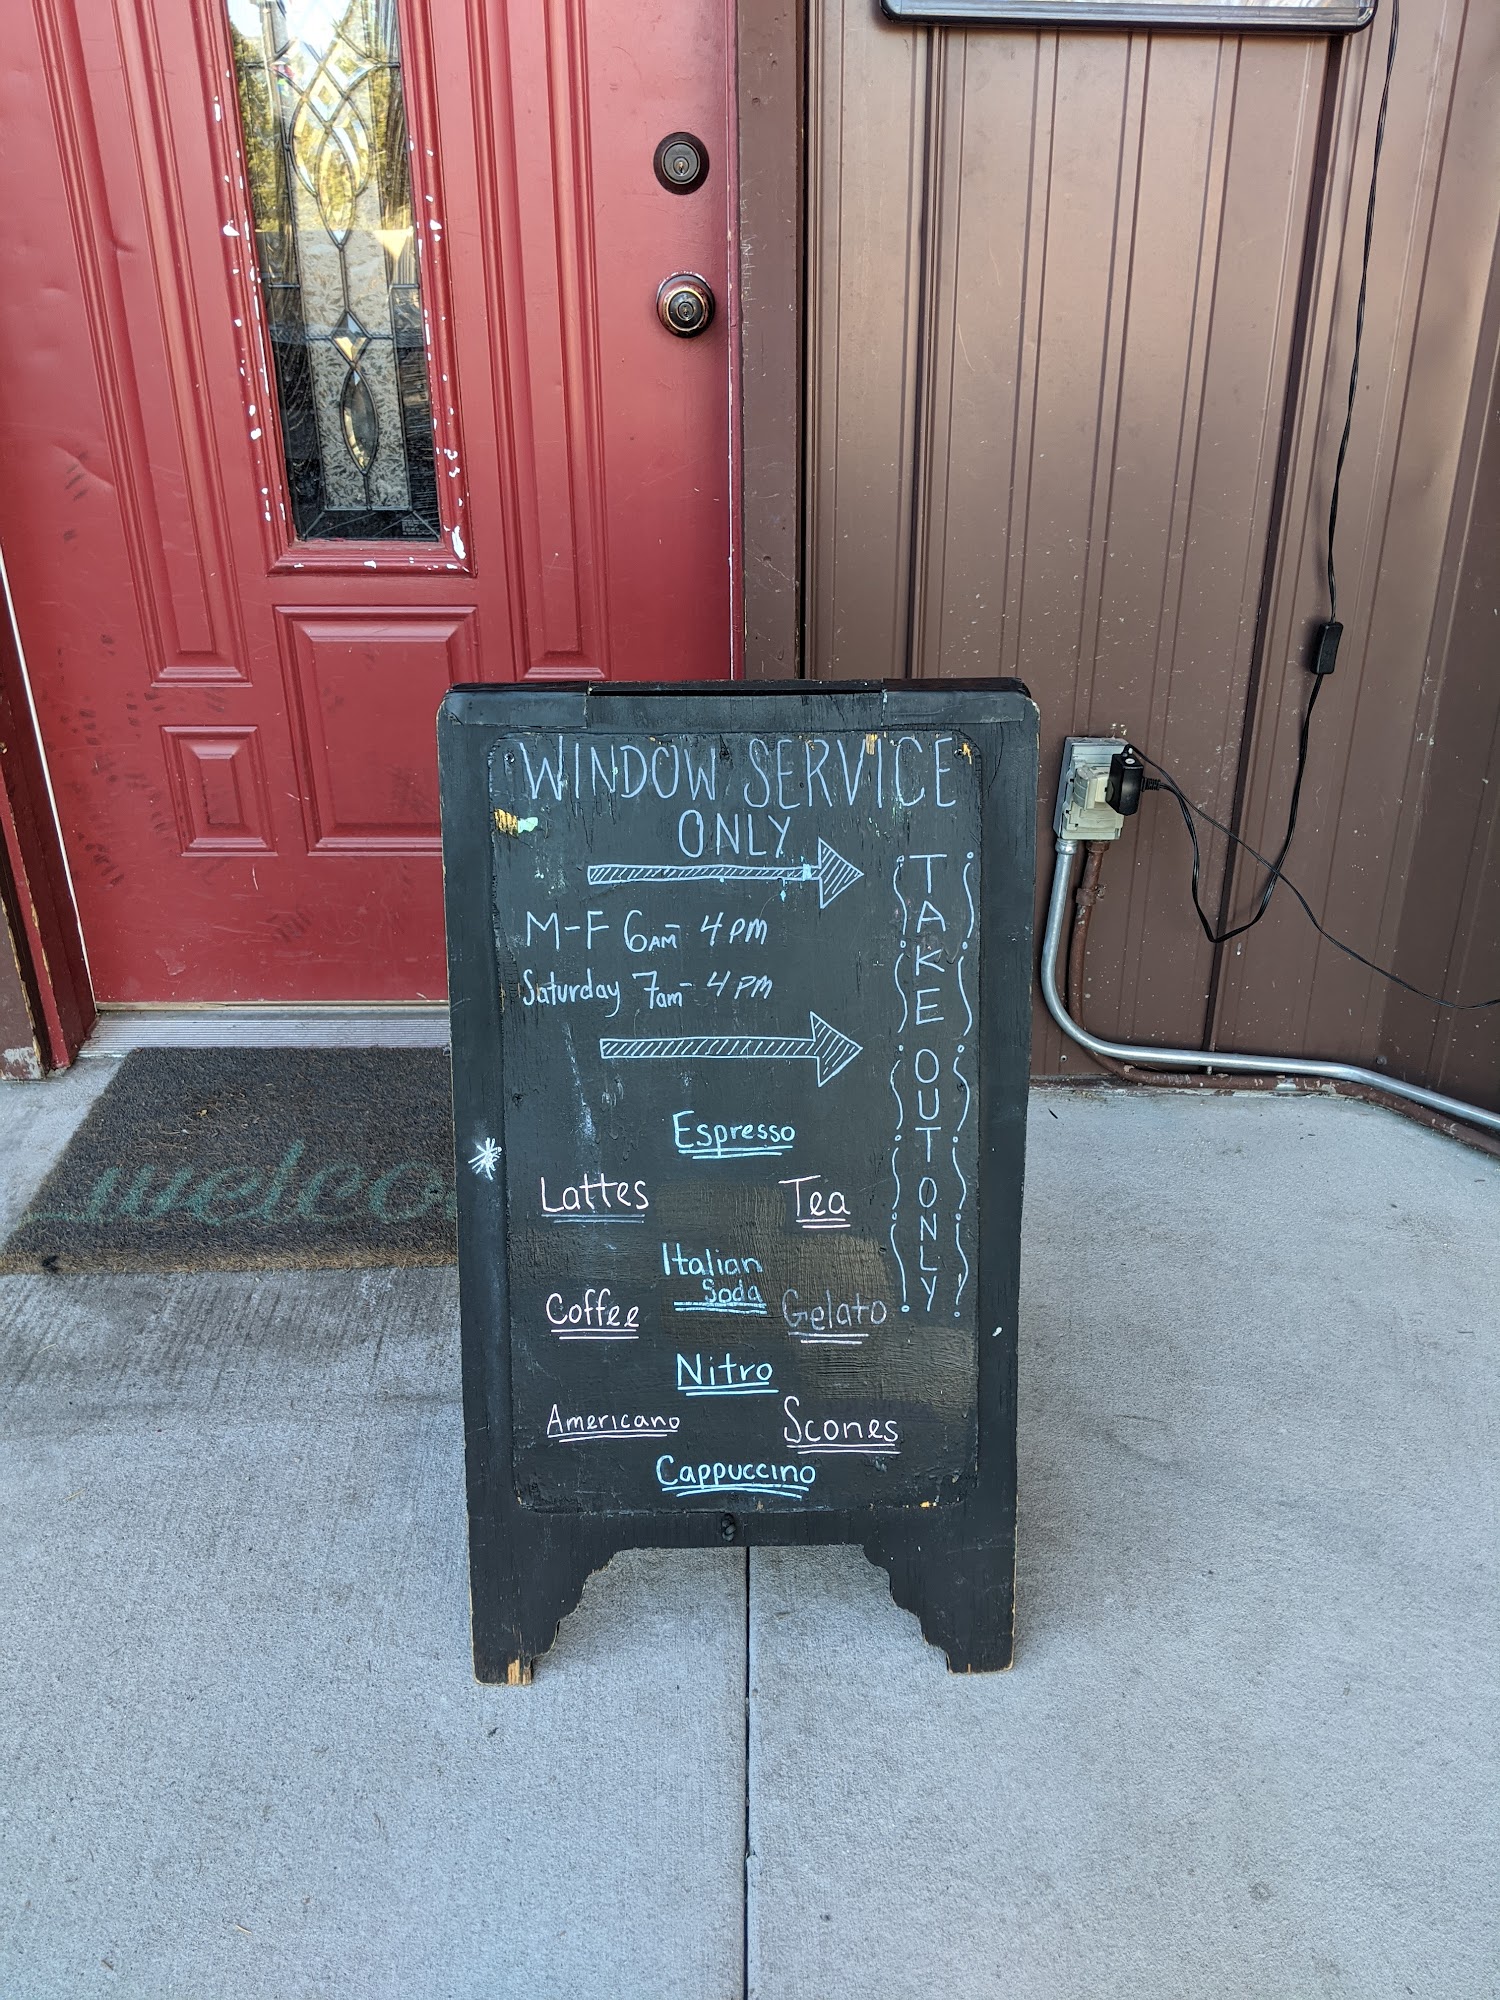 WINDOW SERVICE
ONLY
M-F 6AM- 4PM
Saturday 7am- 4PM
TAKE OUT ONLY
Espresso
Lattes Tea
Italian
Soda
Coffee Gelato
Nitro
Americano Scones
Cappuccino
welco